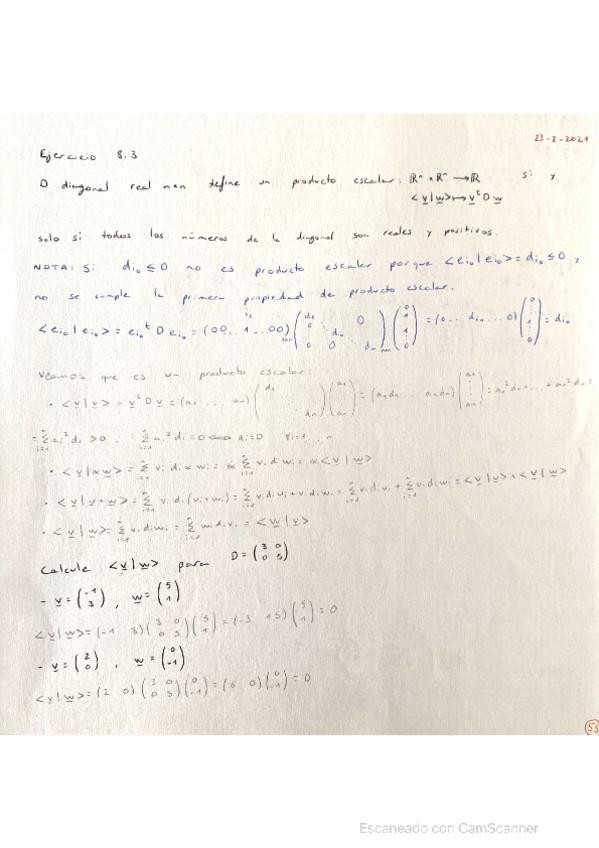 23-2-2021
Ejercicio 8.3
D diagonal real n×n define un producto escalar: ℝⁿ × ℝⁿ → ℝ si y
<v|w> ↦ vᵗ D w
solo si todos los números de la diagonal son reales y positivos.
NOTA: Si d_{i₀} ≤ 0 no es producto escalar porque <e_{i₀}|e_{i₀}> = d_{i₀} ≤ 0 y
no se cumple la primera propiedad de producto escalar.
<e_{i₀}|e_{i₀}> = e_{i₀}ᵗ D e_{i₀} = (0 0 ... 1 ... 0 0) = (0 ... d_{i₀} ... 0) = d_{i₀}
Veamos que es un producto escalar:
· <v|v> = vᵗ D v = (a₁ ... aₙ) (d₁ ... dₙ) (a₁ ... aₙ) = (a₁d₁ ... aₙdₙ) (a₁ ... aₙ) = a₁²d₁ + ... + aₙ²dₙ =
= Σ aᵢ² dᵢ > 0 . Σ aᵢ² dᵢ = 0 ⟺ aᵢ = 0 ∀i = 1, ..., n
· <v|αw> = Σ vᵢ dᵢ α wᵢ = α Σ vᵢ dᵢ wᵢ = α <v|w>
· <v|u+w> = Σ vᵢ dᵢ (uᵢ + wᵢ) = Σ vᵢ dᵢ uᵢ + vᵢ dᵢ wᵢ = Σ vᵢ dᵢ uᵢ + Σ vᵢ dᵢ wᵢ = <v|u> + <v|w>
· <v|w> = Σ vᵢ dᵢ wᵢ = Σ wᵢ dᵢ vᵢ = <w|v>
Calcule <v|w> para D = (3 0 / 0 5)
- v = (-1 / 3) , w = (5 / 1)
<v|w> = (-1 3) (3 0 / 0 5) (5 / 1) = (-3 15) (5 / 1) = 0
- v = (2 / 0) , w = (0 / -1)
<v|w> = (2 0) (3 0 / 0 5) (0 / -1) = (6 0) (0 / -1) = 0
53
Escaneado con CamScanner